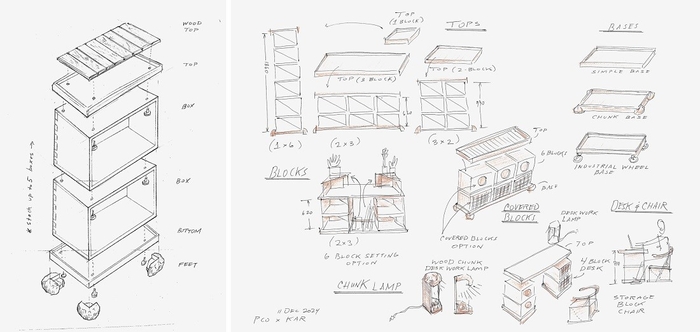 WOOD
TOP
TOP
BOX
BOX
BOTTOM
FEET
* Stack up to 5 boxes →
TOP
(1 BLOCK)
TOPS
TOP (3 BLOCK)
TOP (2-BLOCKS)
(1×6)
(2×3)
(3×2)
BASES
SIMPLE BASE
CHUNK BASE
INDUSTRIAL WHEEL
BASE
BLOCKS
620
(2×3)
6 BLOCK SETTING
OPTION
TOP
6 BLOCKS
BASE
COVERED
BLOCKS
COVERED BLOCKS
OPTION
DESK WORK
LAMP
TOP
4 BLOCK
DESK
DESK & CHAIR
STORAGE
BLOCK
CHAIR
WOOD CHUNK
DESK WORK LAMP
CHUNK LAMP
11 DEC 2024
PCO × KAR